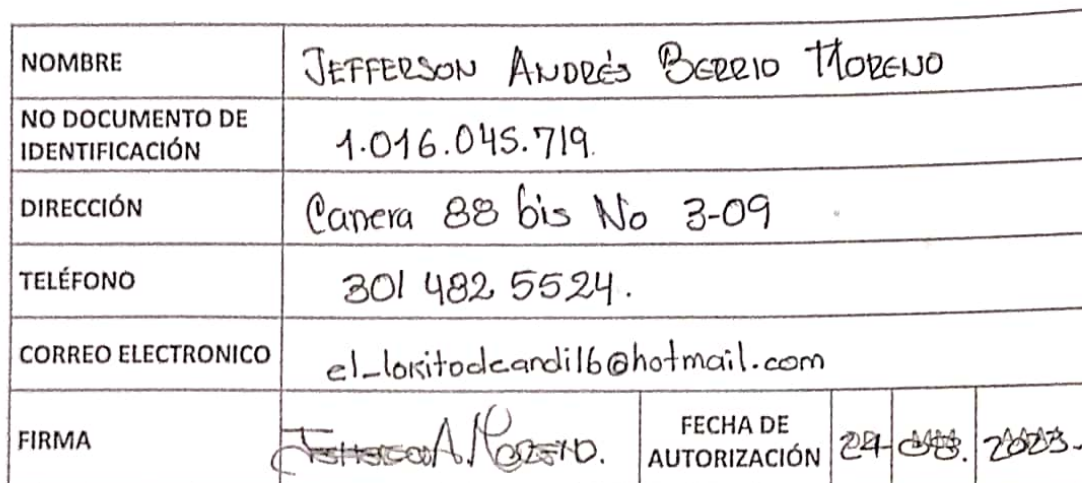 NOMBRE JEFFERSON ANDRÉS BERRIO MORENO
NO DOCUMENTO DE
IDENTIFICACIÓN 1.016.045.719.
DIRECCIÓN Carrera 88 bis No 3-09
TELÉFONO 301 482 5524.
CORREO ELECTRONICO el_lokitodecandil6@hotmail.com
FIRMA A. Moreno.
FECHA DE
AUTORIZACIÓN 24 2023